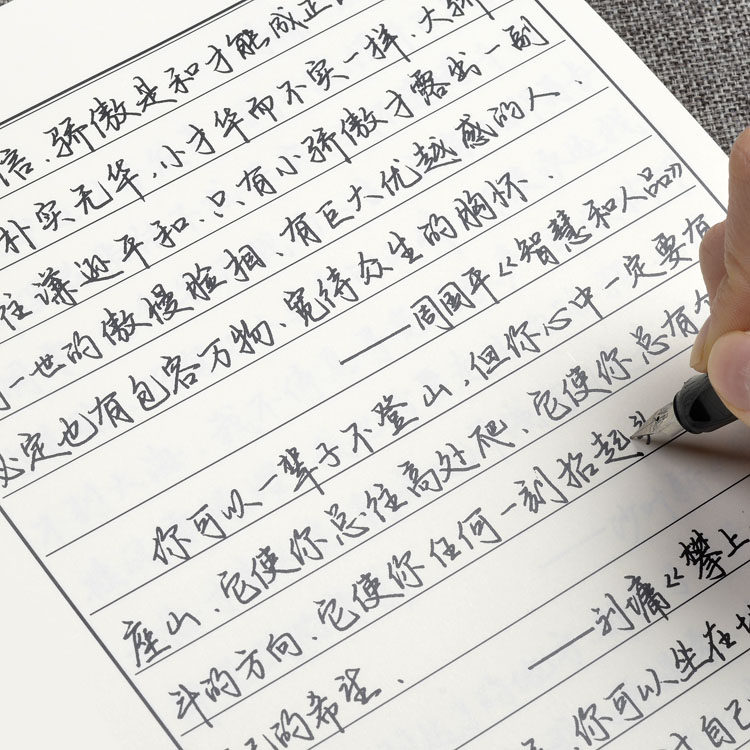 信、骄傲是和才能成正
朴实无华，小才华而不实一样，大骄
往谦逊平和，只有小骄傲才露出一副
一世的傲慢脸相、有巨大优越感的人、
必定也有包容万物、宽待众生的胸怀．
——周国平《智慧和人品》
你可以一辈子不登山，但你心中一定要有
座山、它使你总往高处爬、它使你总有个
斗的方向、它使你任何一刻抬起头
己的希望．
——刘墉《攀上
你可以坐在
自己